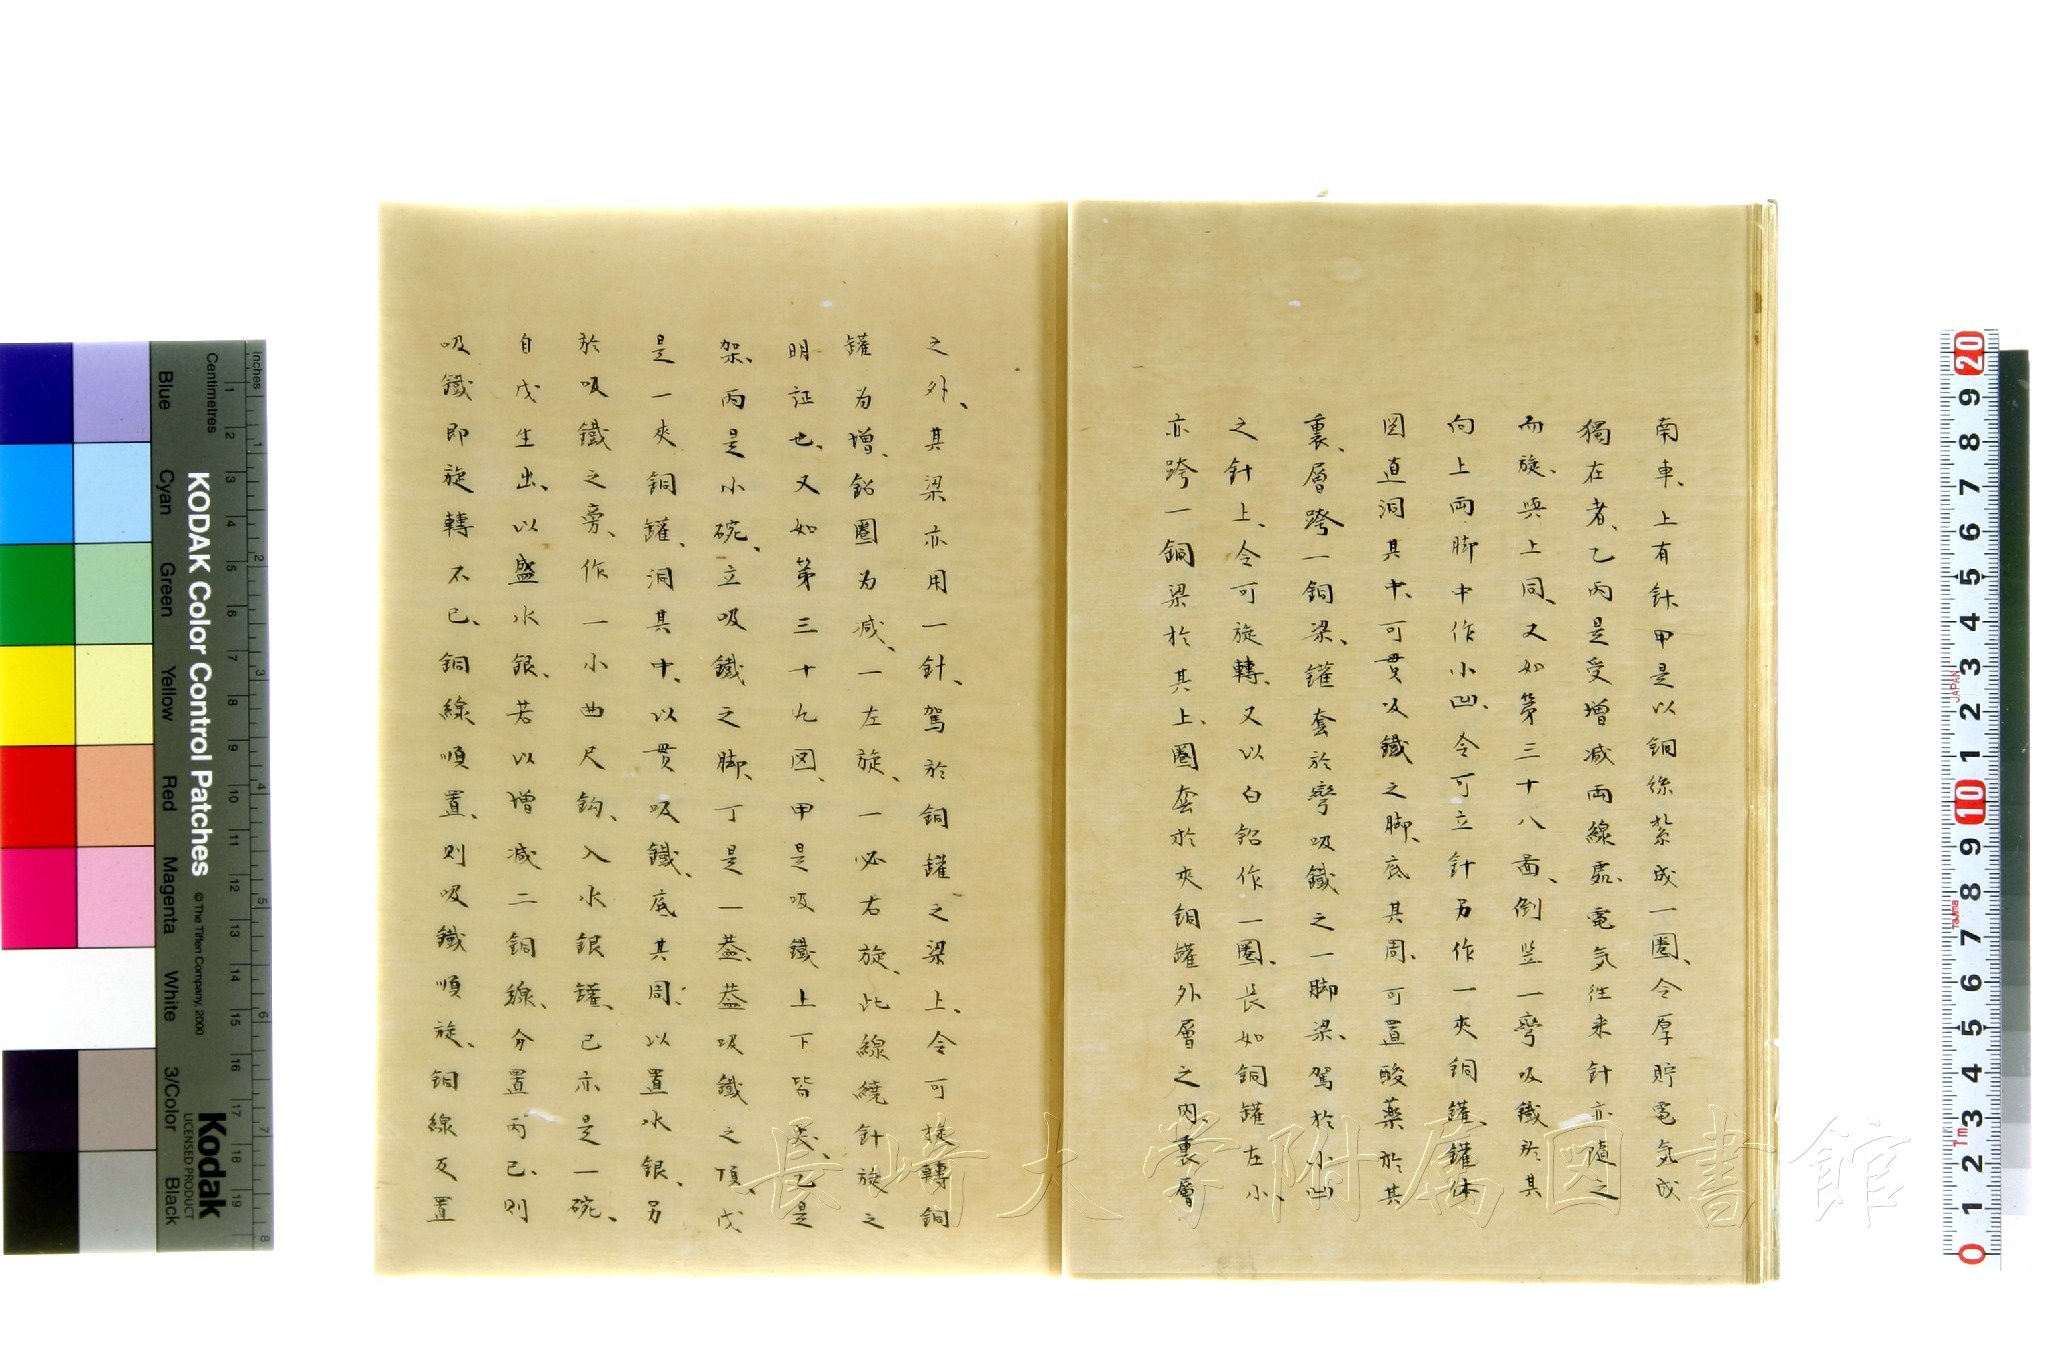 南車、上有針、甲是以銅絲紮成一圈、令厚貯電気或
獨在者、乙丙是受増减両線處、電気往来針亦随之
而旋、與上同、又如第三十八啚、倒竖一彎吸鐵於其
向上両脚中作小凹、令可立針另作一夾銅罐、罐体
図直洞其中、可貫吸鐵之脚、底其周、可置酸薬於其
裏、層跨一銅梁、罐套於彎吸鐵之一脚梁、駕於小凹
之針上、令可旋轉、又以白鉛作一圈、長如銅罐左小、
亦跨一銅梁於其上、圏套於夾銅罐外層之内、裏層
之外、其梁亦用一針、駕於銅罐之梁上、令可旋轉銅
罐為増、鉛圏為减、一左旋、一必右旋、此線繞針旋之
明証也、又如第三十九図、甲是吸鐵上下皆尖、乙是
架、丙是小碗、立吸鐵之脚、丁是一葢、葢吸鐵之頂、戊
是一夾銅罐、洞其中、以貫吸鐵、底其周、以置水銀、另
於吸鐵之旁、作一小曲尺鈎、入水銀罐、已亦是一碗、
自戊生出、以盛水銀、若以増减二銅線、分置丙已、則
吸鐵即旋轉不已、銅線順置、則吸鐵順旋、銅線反置
長崎大学附属図書館
KODAK Color Control Patches
© The Tiffen Company, 2000
Kodak
LICENSED PRODUCT
Blue Cyan Green Yellow Red Magenta White 3/Color Black
Inches 1 2 3 4 5 6 7 8
Centimetres 1 2 3 4 5 6 7 8 9 10 11 12 13 14 15 16 17 18 19
20 9 8 7 6 5 4 3 2 1 10 9 8 7 6 5 4 3 2 1 0
JAPAN
Tajima
1m